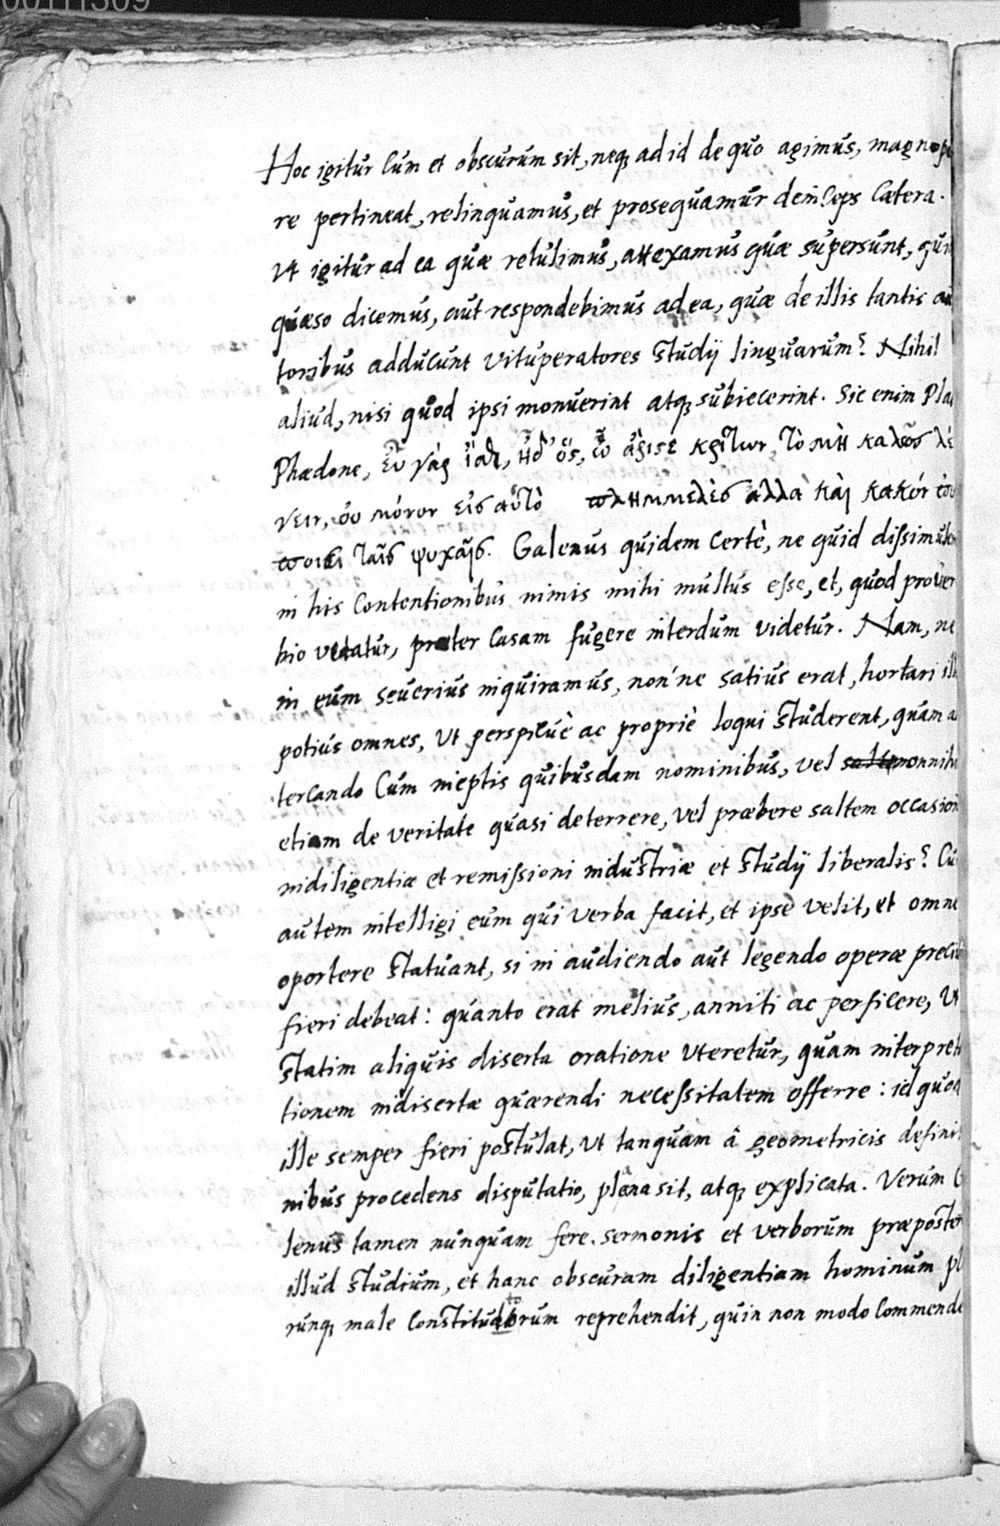 00111309
Hoc igitur cum et obscurum sit, neq ad id de quo agimus, magnope
re pertineat, relinquamus, et prosequamur deinceps cætera.
Vt igitur ad ea quæ retulimus, attexamus quæ supersunt, quid
quæso dicemus, aut respondebimus ad ea, quæ de illis tantis au
toribus adducunt vituperatores studij linguarum? Nihil
aliud, nisi quod ipsi monuerint atq subiecerint. Sic enim Plat
Phædone, εὖ γὰρ ἴσθι, ἦδ' ὅς, ὦ ἄριστε κρίτων, τὸ μὴ καλῶς λέ
γειν, οὐ μόνον εἰς αὐτὸ πλημμελὲς ἀλλὰ καὶ κακόν
ποιεῖ ταῖς ψυχαῖς. Galenus quidem certè, ne quid dissimulem
in his contentionibus nimis mihi multus esse, et, quod prover
bio vetatur, præter casam fugere interdum videtur. Nam, ne
in eum seuerius inquiramus, non'ne satius erat, hortari ill
potius omnes, vt perspicuè ac propriè loqui studerent, quam a
tercando cum ineptis quibusdam nominibus, vel nonnihi
etiam de veritate quasi deterrere, vel præbere saltem occasion
indiligentiæ et remissioni industriæ et studij liberalis? Cu
autem intelligi eum qui verba facit, et ipse velit, et omne
oportere statuant, si in audiendo aut legendo operæ preciu
fieri debeat: quanto erat melius, anniti ac perficere, vt
statim aliquis diserta oratione vteretur, quam interpreta
tionem indisertæ quærendi necessitatem offerre: id quod
ille semper fieri postulat, vt tanquam â geometricis defini
nibus procedens disputatio, plana sit, atq explicata. Verum G
lenus tamen nunquam fere sermonis et verborum præposter
illud studium, et hanc obscuram diligentiam hominum pl
runq male constitutorum reprehendit, quin non modo commende